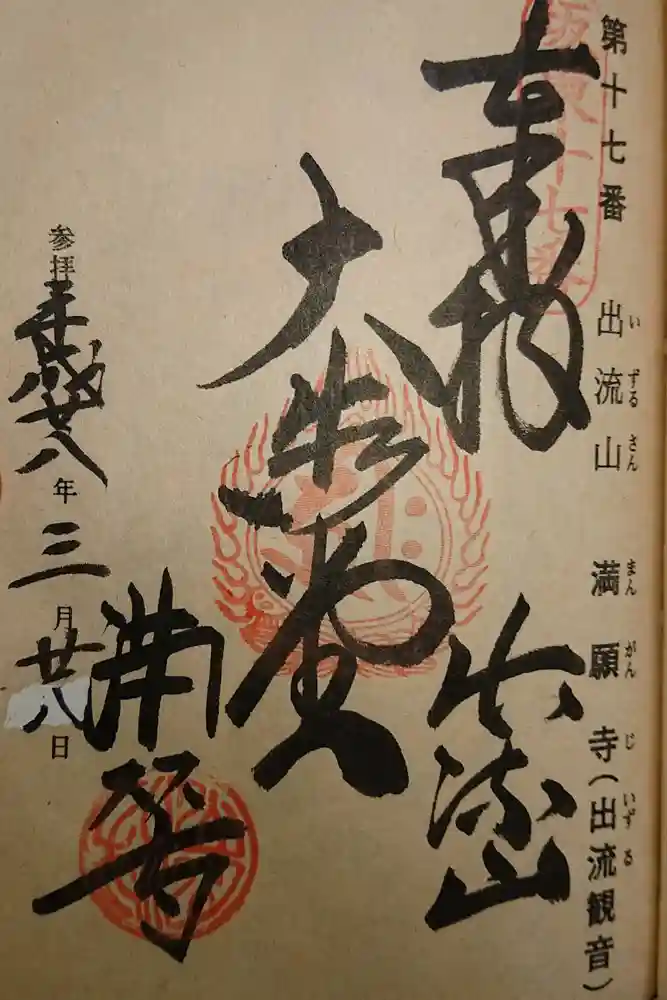 第十七番 出流山 満願寺(出流観音)
いずるさん まんがんじ いずる
坂東十七番
奉拝 出流山
大悲堂
満願寺
参拝 平成廿八年三月廿八日